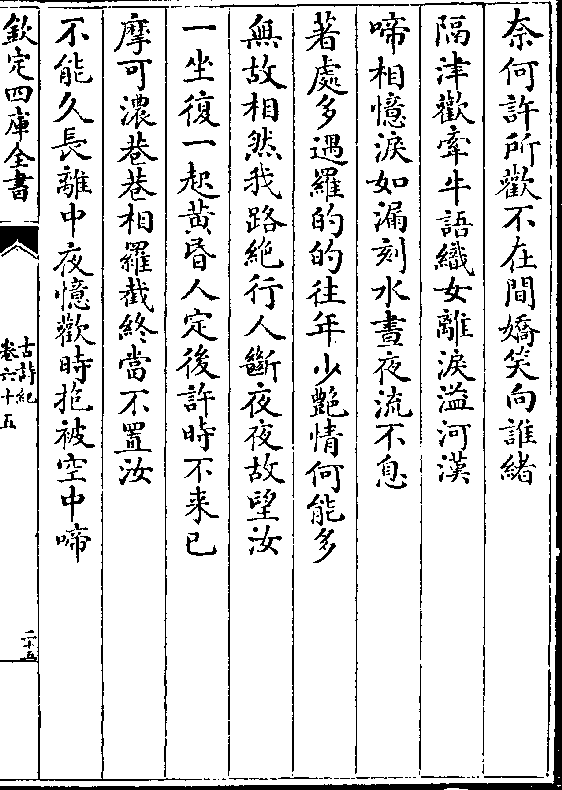 奈何許所歡不在間嬌笑向誰緒
隔津歡牽牛語織女離淚溢河漢
啼相憶淚如漏刻水晝夜流不息
著處多遇羅的的往年少艶情何能多
無故相然我路絶行人斷夜夜故望汝
一坐復一起黄昏人定後許時不来已
摩可濃巷巷相羅截終當不置汝
不能久長離中夜憶歡時抱被空中啼
欽定四庫全書
古詩紀
卷六十五
二十五